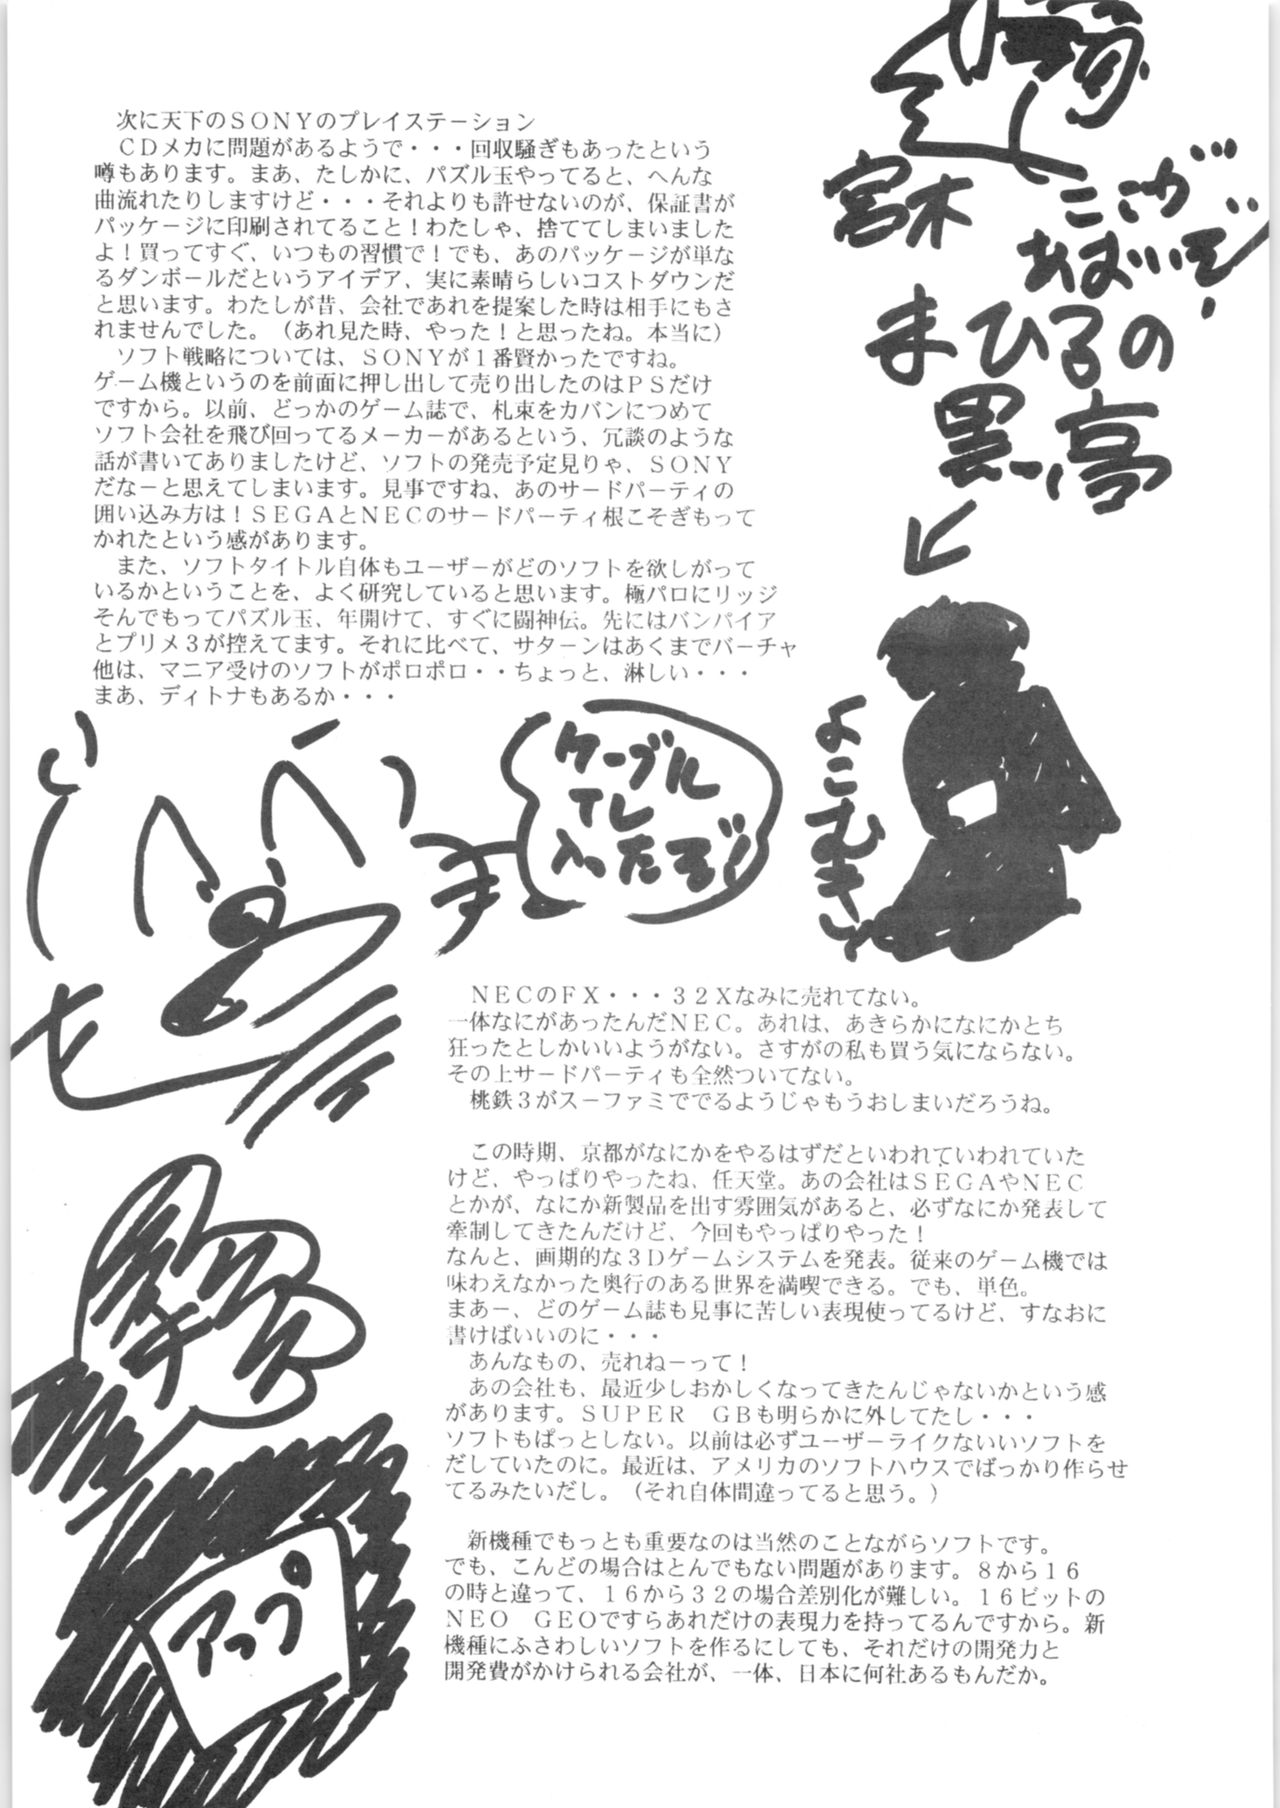 次に天下のSONYのプレイステーション
CDメカに問題があるようで・・・回収騒ぎもあったという
噂もあります。まあ、たしかに、パズル玉やってると、へんな
曲流れたりしますけど・・・それよりも許せないのが、保証書が
パッケージに印刷されてること!わたしゃ、捨ててしまいました
よ!買ってすぐ、いつもの習慣で!でも、あのパッケージが単な
るダンボールだというアイデア、実に素晴らしいコストダウンだ
と思います。わたしが昔、会社であれを提案した時は相手にもさ
れませんでした。(あれ見た時、やった!と思ったね。本当に)
ソフト戦略については、SONYが1番賢かったですね。
ゲーム機というのを前面に押し出して売り出したのはPSだけ
ですから。以前、どっかのゲーム誌で、札束をカバンにつめて
ソフト会社を飛び回ってるメーカーがあるという、冗談のような
話が書いてありましたけど、ソフトの発売予定見りゃ、SONY
だなーと思えてしまいます。見事ですね、あのサードパーティの
囲い込み方は!SEGAとNECのサードパーティ根こそぎもって
かれたという感があります。
また、ソフトタイトル自体もユーザーがどのソフトを欲しがって
いるかということを、よく研究していると思います。極パロにリッジ
そんでもってパズル玉、年開けて、すぐに闘神伝。先にはバンパイア
とプリメ3が控えてます。それに比べて、サターンはあくまでバーチャ
他は、マニア受けのソフトがポロポロ・・ちょっと、淋しい・・・
まあ、ディトナもあるか・・・
宮木
ここが
あまいぞ!
まひるの
黒い亭
よこむき
ケーブル
TV
入ったぞ!
NECのFX・・・32Xなみに売れてない。
一体なにがあったんだNEC。あれは、あきらかになにかとち
狂ったとしかいいようがない。さすがの私も買う気にならない。
その上サードパーティも全然ついてない。
桃鉄3がスーファミででるようじゃもうおしまいだろうね。
この時期、京都がなにかをやるはずだといわれていわれていた
けど、やっぱりやったね、任天堂。あの会社はSEGAやNEC
とかが、なにか新製品を出す雰囲気があると、必ずなにか発表して
牽制してきたんだけど、今回もやっぱりやった!
なんと、画期的な3Dゲームシステムを発表。従来のゲーム機では
味わえなかった奥行のある世界を満喫できる。でも、単色。
まあー、どのゲーム誌も見事に苦しい表現使ってるけど、すなおに
書けばいいのに・・・
あんなもの、売れねーって!
あの会社も、最近少しおかしくなってきたんじゃないかという感
があります。SUPER GBも明らかに外してたし・・・
ソフトもぱっとしない。以前は必ずユーザーライクないいソフトを
だしていたのに。最近は、アメリカのソフトハウスでばっかり作らせ
てるみたいだし。(それ自体間違ってると思う。)
新機種でもっとも重要なのは当然のことながらソフトです。
でも、こんどの場合はとんでもない問題があります。8から16
の時と違って、16から32の場合差別化が難しい。16ビットの
NEO GEOですらあれだけの表現力を持ってるんですから。新
機種にふさわしいソフトを作るにしても、それだけの開発力と
開発費がかけられる会社が、一体、日本に何社あるもんだか。
アップ